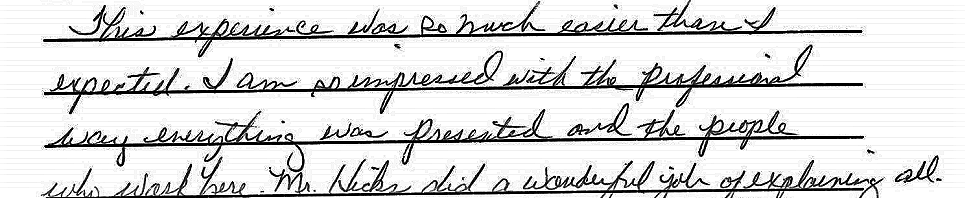 This experience was so much easier than I
expected. I am so impressed with the professional
way everything was presented and the people
who work here. Mr. Hicks did a wonderful job of explaining all.